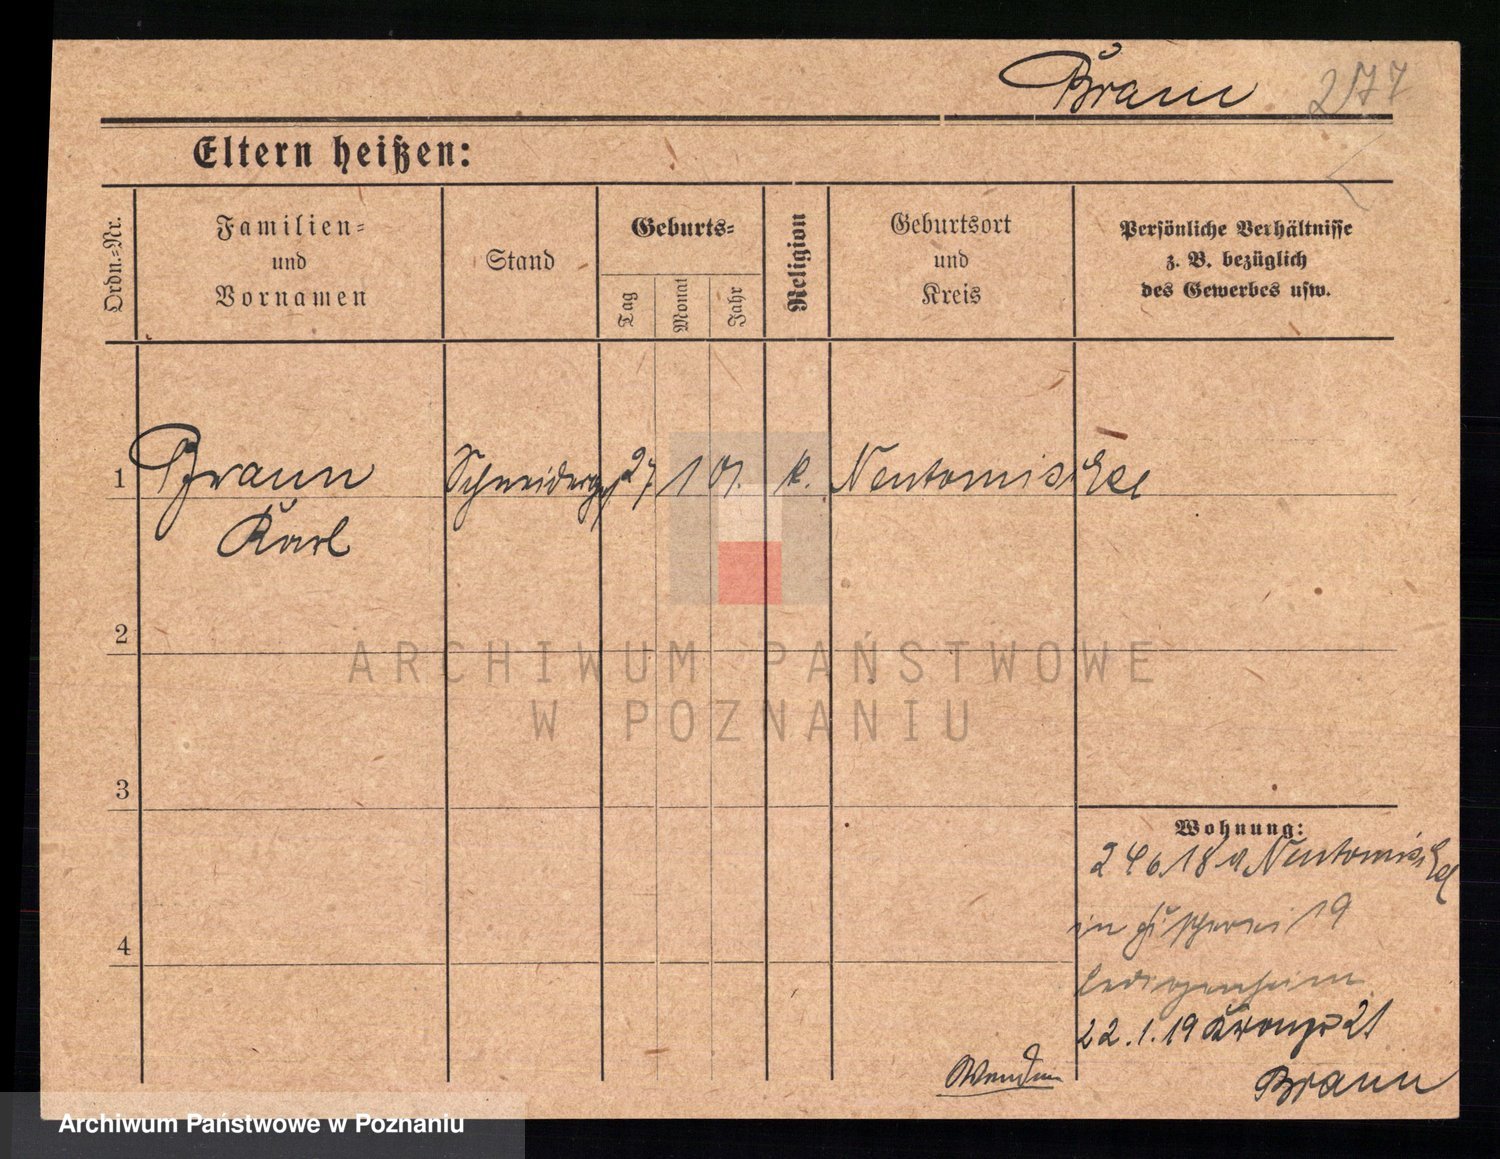 Braun 277
Eltern heißen:
Ordn.-Nr.
Familien-
und
Vornamen
Stand
Geburts-
Tag
Monat
Jahr
Religion
Geburtsort
und
Kreis
Persönliche Verhältnisse
z. B. bezüglich
des Gewerbes usw.
1 Braun Schneiderg. 27 1 01. k. Neutomischel
Karl
2
ARCHIWUM PAŃSTWOWE
W POZNANIU
3
Wohnung:
18 Neutomischel
in 19
Ledigenheim
22.1.19 21
4
Wenden
Braun
Archiwum Państwowe w Poznaniu